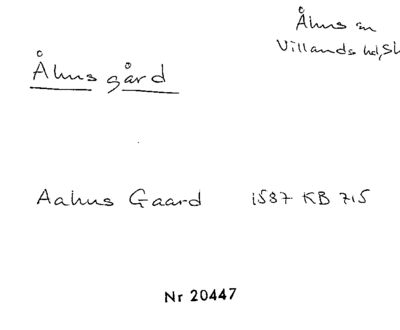 Åhus sn
Villands hd, Sk
Åhus gård
Aahus Gaard 1587 KB 715
Nr 20447